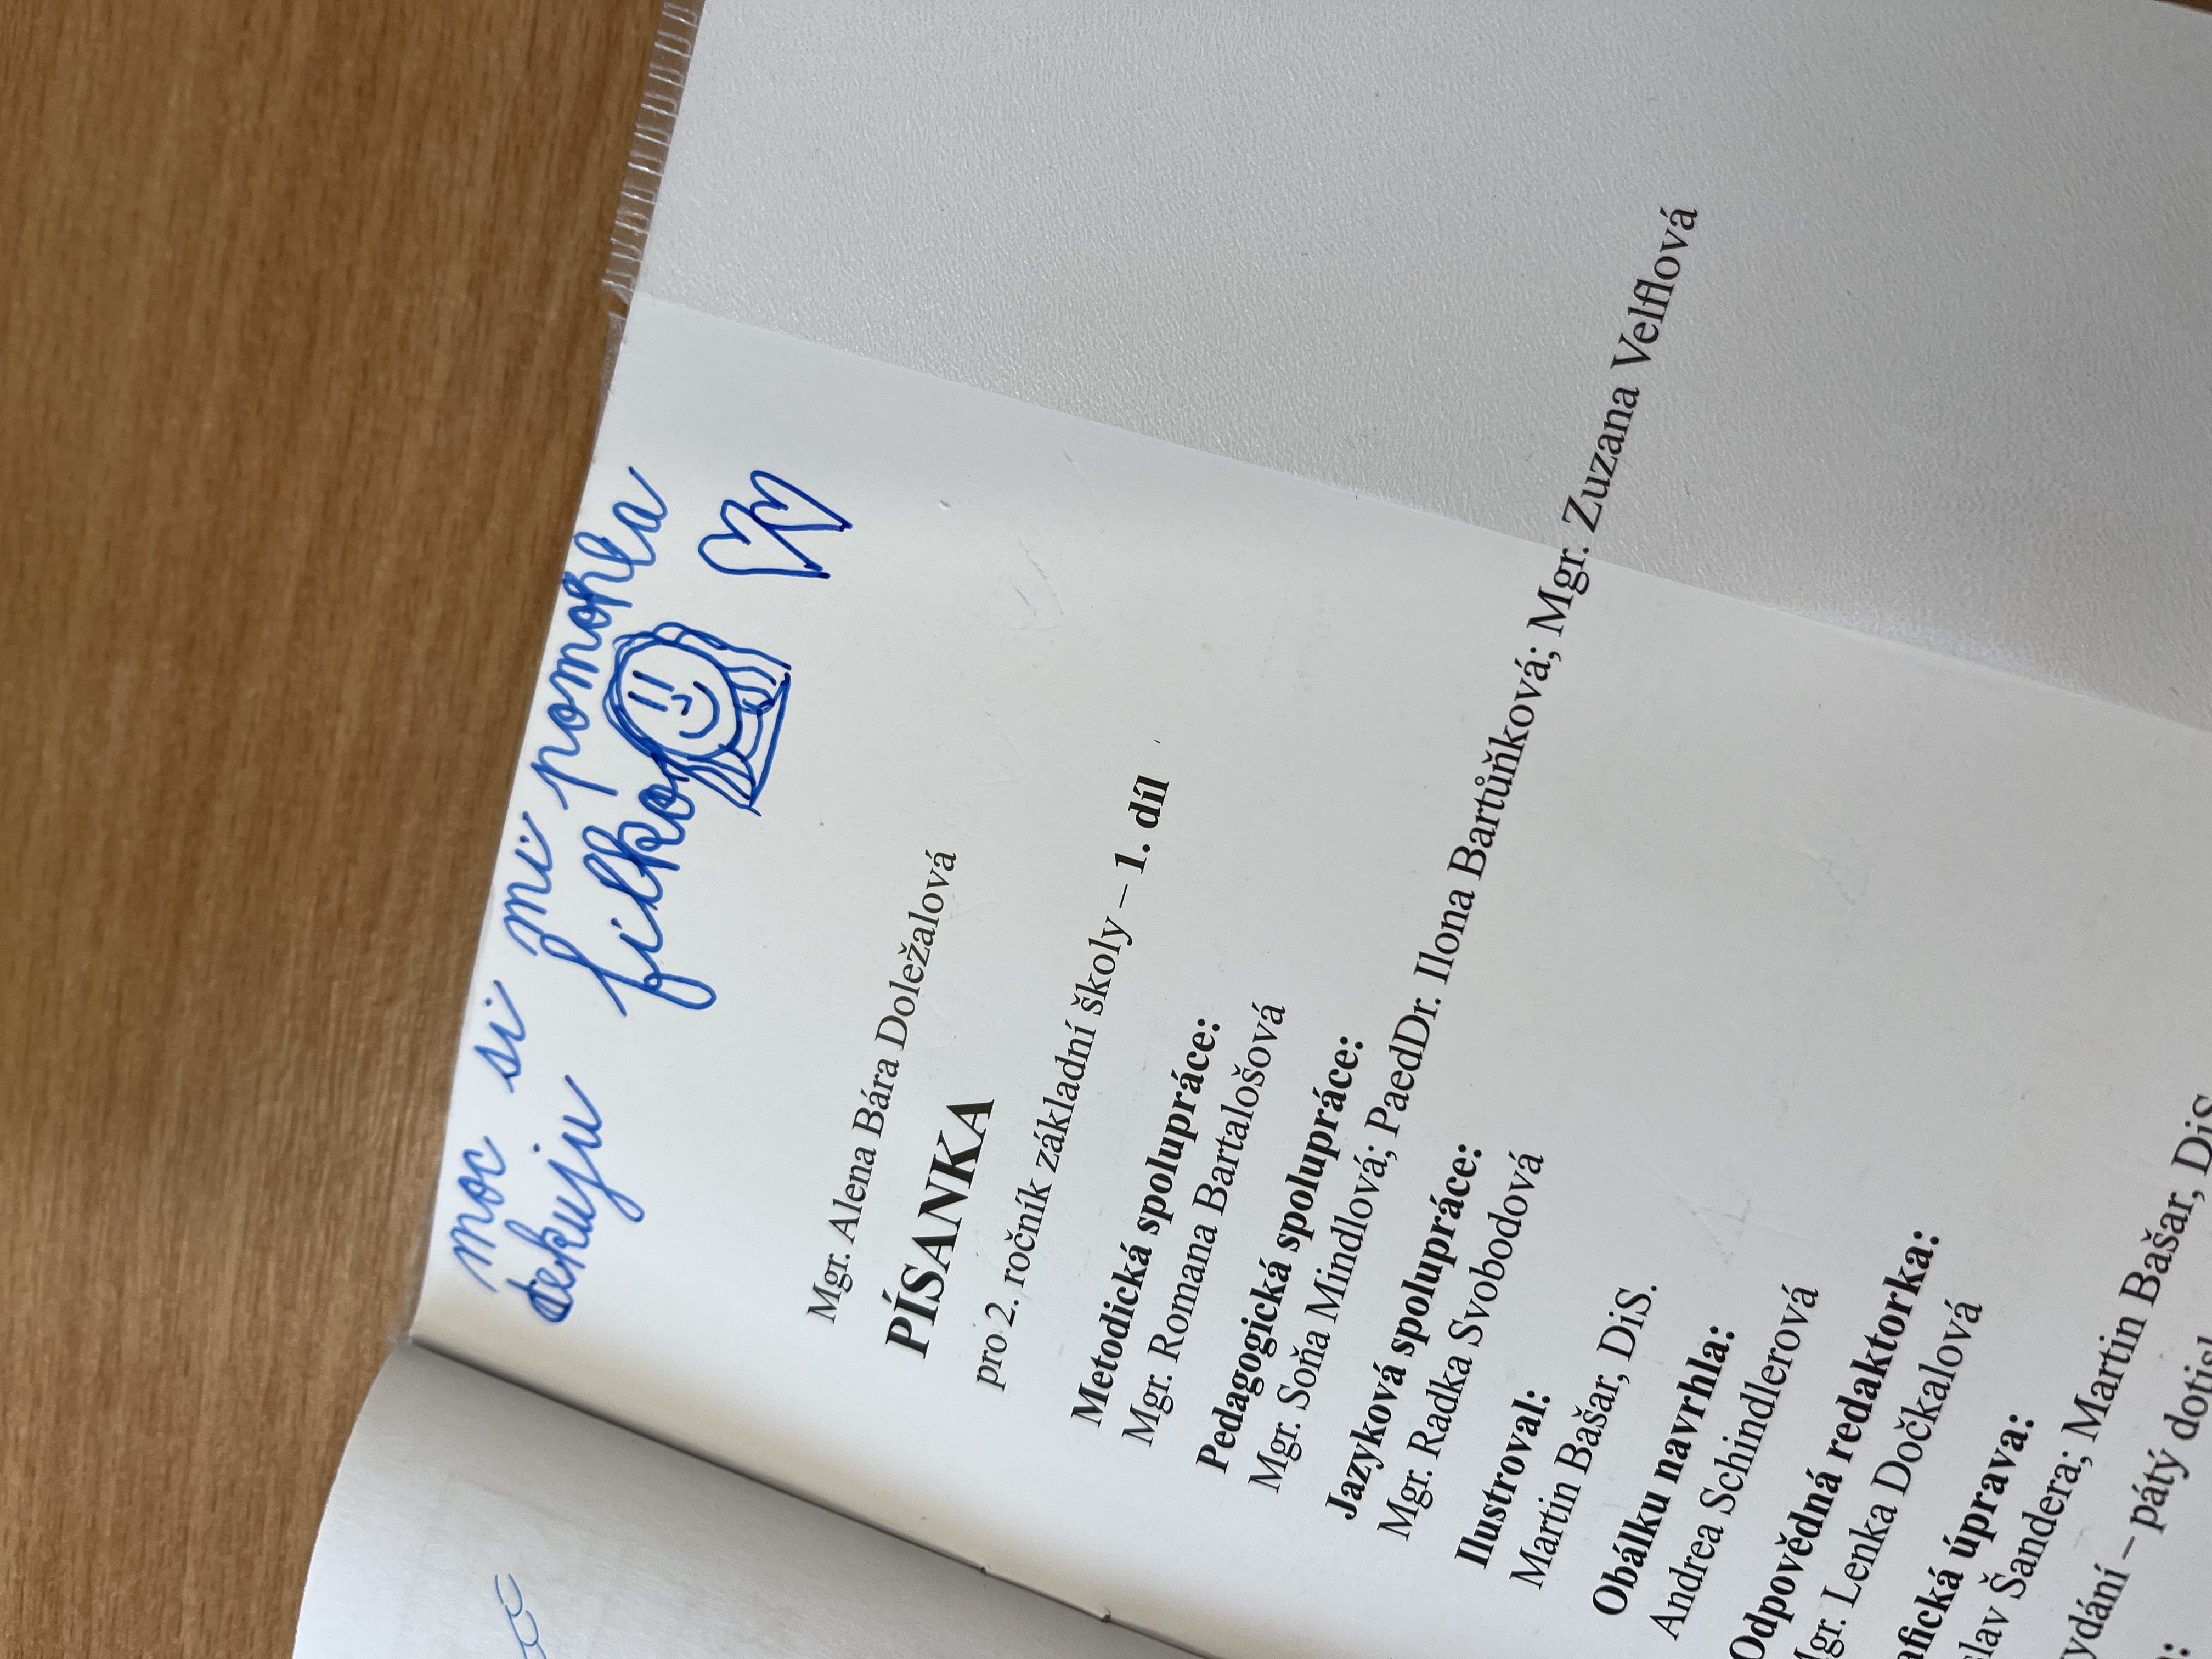 moc si mi pomohla
dekuju filko
Mgr. Alena Bára Doležalová
PÍSANKA
pro 2. ročník základní školy – 1. díl
Metodická spolupráce:
Mgr. Romana Bartalošová
Pedagogická spolupráce:
Mgr. Soňa Mindlová; PaedDr. Ilona Bartůňková; Mgr. Zuzana Velflová
Jazyková spolupráce:
Mgr. Radka Svobodová
Ilustroval:
Martin Bašar, DiS.
Obálku navrhla:
Andrea Schindlerová
Odpovědná redaktorka:
Mgr. Lenka Dočkalová
afická úprava:
slav Šandera; Martin Bašar, DiS.
vydání – pátý dotisk